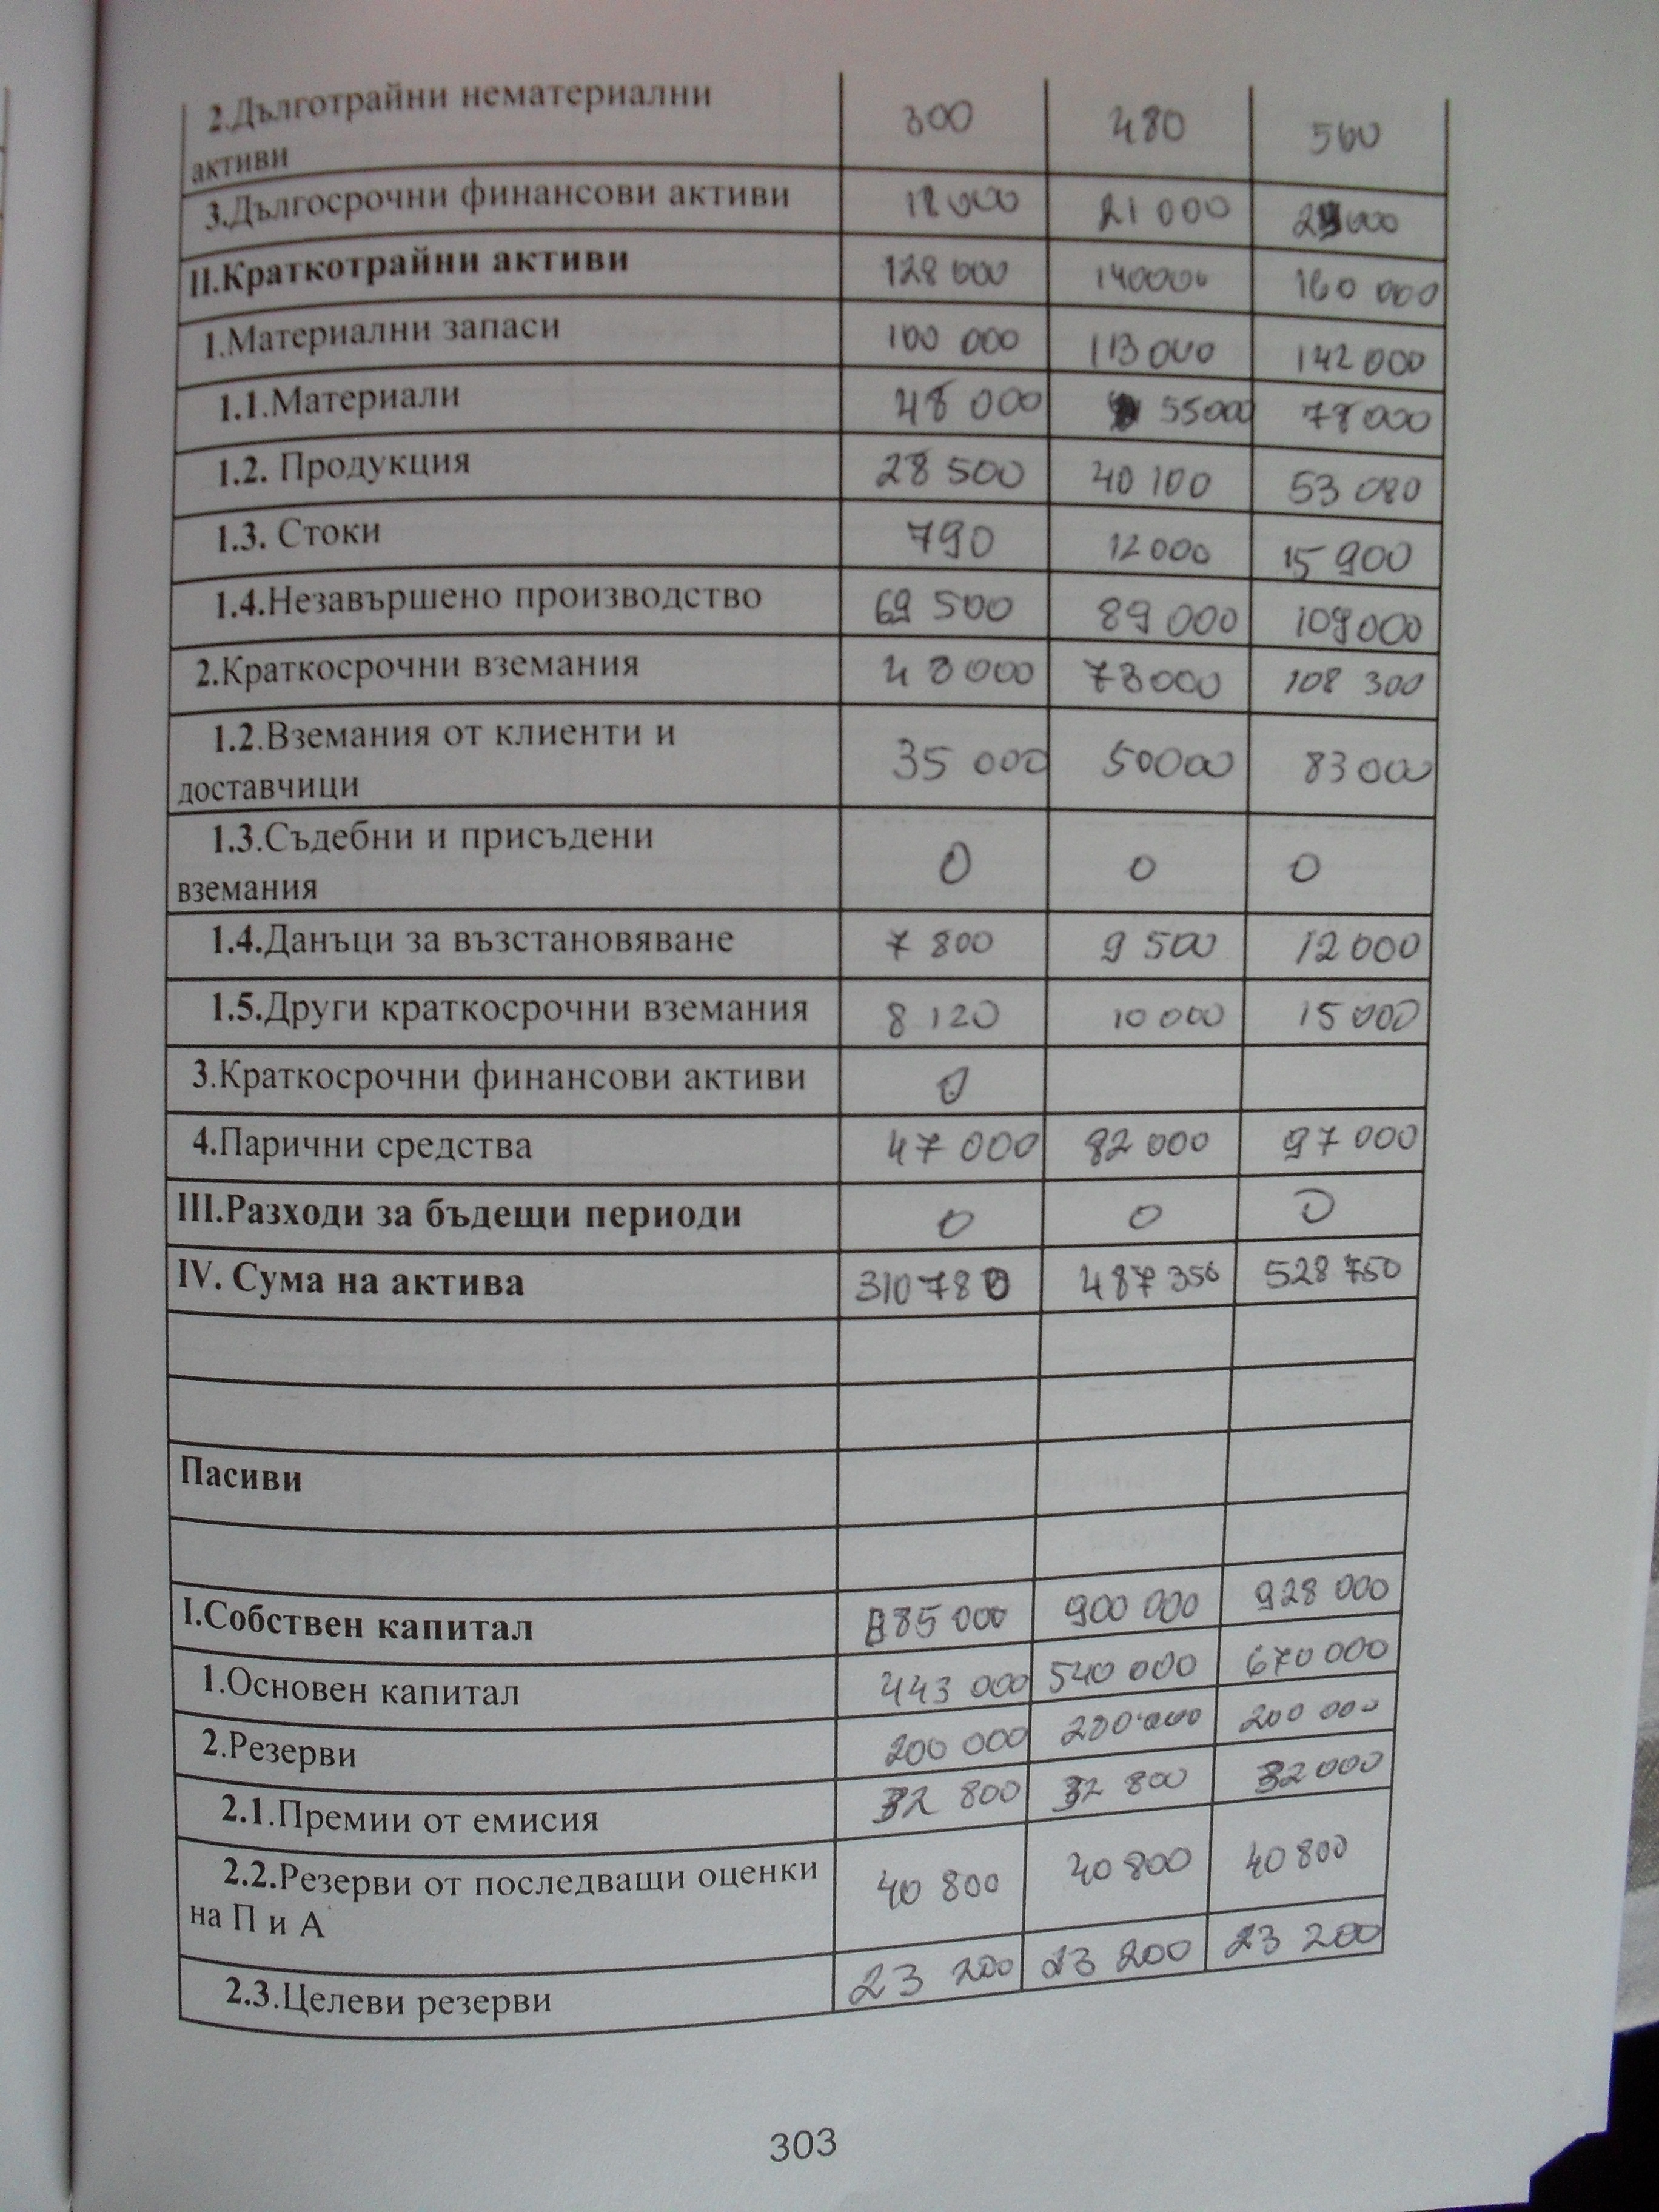 2.Дълготрайни нематериални активи 300 480 560
3.Дългосрочни финансови активи 18 000 21 000 000
II.Краткотрайни активи 128 000 140000 160 000
1.Материални запаси 100 000 113 000 142 000
1.1.Материали 48 000 55000 78000
1.2. Продукция 28 500 40 100 53 080
1.3. Стоки 790 12 000 15 900
1.4.Незавършено производство 69 500 89 000 109000
2.Краткосрочни вземания 43 000 73000 108 300
1.2.Вземания от клиенти и доставчици 35 000 50000 83 000
1.3.Съдебни и присъдени вземания 0 0 0
1.4.Данъци за възстановяване 7 800 9 500 12 000
1.5.Други краткосрочни вземания 8 120 10 000 15 000
3.Краткосрочни финансови активи 0
4.Парични средства 47 000 82 000 97 000
III.Разходи за бъдещи периоди 0 0 0
IV. Сума на актива 310 780 487 350 528 750
Пасиви
I.Собствен капитал 885 000 900 000 928 000
1.Основен капитал 443 000 540 000 670 000
2.Резерви 200 000 200 000 200 000
2.1.Премии от емисия 32 800 32 800 32 000
2.2.Резерви от последващи оценки на П и А 40 800 40 800 40 800
2.3.Целеви резерви 23 200 23 200 23 200
303